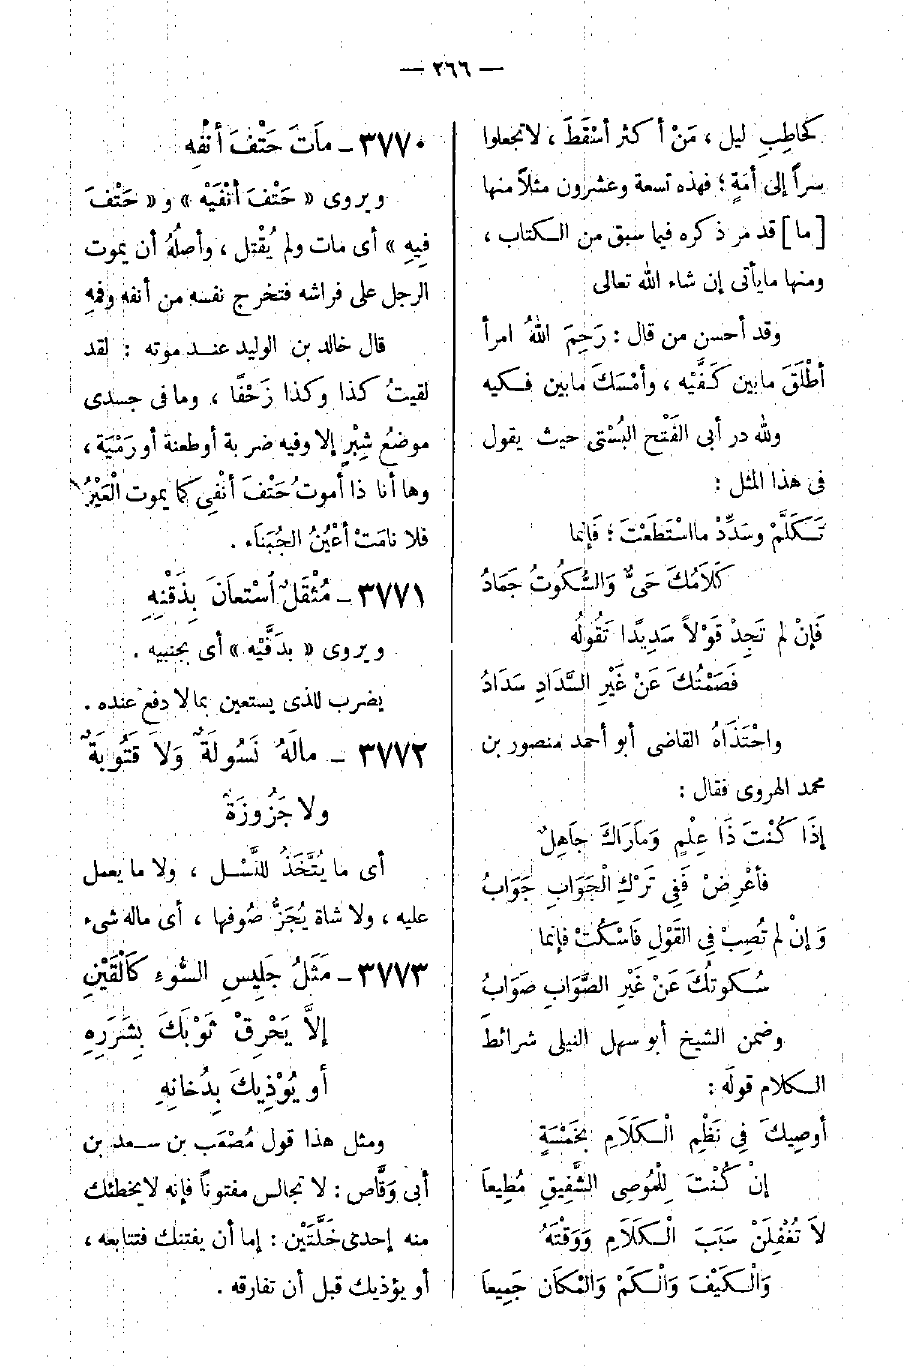 — ٢٦٦ —
كحاطِبِ ليل ، مَنْ أكثر أسْقَطَ ، لا تجعلوا
سراً إلى أمَةٍ ؛ فهذه تسعة وعشرون مثلاً منها
[ ما ] قد مر ذكره فيما سبق من الكتاب ،
ومنها مايأتى إن شاء الله تعالى
وقد أحسن من قال : رَحِمَ اللهُ امرأ
أطْلَقَ مابين كَفَّيْه ، وأمْسَكَ مابين فكيه
ولله در أبى الفَتْح البُسْتى حيث يقول
فى هذا المثل :
تَكَلَّمْ وسَدِّدْ مااسْتَطَعْتَ ؛ فَإنما
كَلاَمُكَ حَىٌّ وَالسُّكوتُ جَمَادُ
فَإنْ لم تَجِدْ قَوْلاً سَدِيدًا تَقُولُه
فَصَمْتُكَ عَنْ غَيْرِ السَّدَادِ سَدَادُ
واحْتَذَاهُ القاضى أبو أحمد منصور بن
محمد الهروى فقال :
إذَا كُنْتَ ذَا عِلْمٍ وَمَارَاكَ جَاهِلٌ
فأعْرِضْ فَفِى تَرْكِ الْجَوَابِ جَوَابُ
وَإنْ لم تُصِبْ فى القَوْلِ فَاسْكُتْ فإنما
سُكوتُكَ عَنْ غَيْرِ الصَّوَابِ صَوَابُ
وضمن الشيخ أبو سهل النيلى شرائط
الكلام قوله :
أوصِيكَ فى نَظْمِ الْكلَامِ بخَمْسَةٍ
إنْ كُنْتَ لِلْمُوصِى الشَّفِيقِ مُطِيعاَ
لاَ تُغْفِلَنْ سَبَبَ الْكلَامِ وَوَقْتَهُ
وَالْكيْفَ وَالْكمْ وَالمْكَان جَمِيعاَ
٣٧٧٠ – مَاتَ حَتْفَ أنْفِه
ويروى « حَتْفَ أنْفَيْه » و « حَتْفَ
فِيهِ » أى مات ولم يُقْتل ، وأصلُهُ أن يموت
الرجل على فراشه فتخرج نفسه من أنفه وفمهِ
قال خالد بن الوليد عند موته : لقد
لقيتُ كذا وكذا زَحْفًا ، وما فى جسدى
موضعُ شِبْرٍ إلا وفيه ضربة أو طعنة أو رَمْيَة ،
وها أنا ذا أموتُ حَتْفَ أنْفِى كما يموت الْعَيْرُ
فلا نامَتْ أعْيُنُ الجُبَنَاء .
٣٧٧١ – مُثْقَلٌ اُسْتعاَنَ بِذَقْنِهِ
ويروى « بدَفَّيْه » أى بجنبيه .
يضرب للذى يستعين بمالا دفع عنده .
٣٧٧٢ – مالَهُ نَسُولَةٌ وَلاَ قَتُوبَةٌ
ولا جَزُوزَةٌ
أى ما يُتَّخَذُ للنَّسْل ، ولا ما يعمل
عليه ، ولا شاة يُجَزُّ صُوفها ، أى ماله شىء
٣٧٧٣ – مَثَلُ جَلِيسِ السُّوءِ كَالْقَيْنِ
إلاَّ يَحْرِقْ ثَوْبَكَ بِشَرَرِهِ
أو يُوْذِيكَ بِدُخانِهِ
ومثل هذا قول مُصْعَب بن سعد بن
أبى وَقَّاص : لا تجالس مفتوناً فإنه لايخطئك
منه إحدى خَلَّتَيْن : إما أن يفتنك فتتابعه ،
أو يؤذيك قبل أن تفارقه .